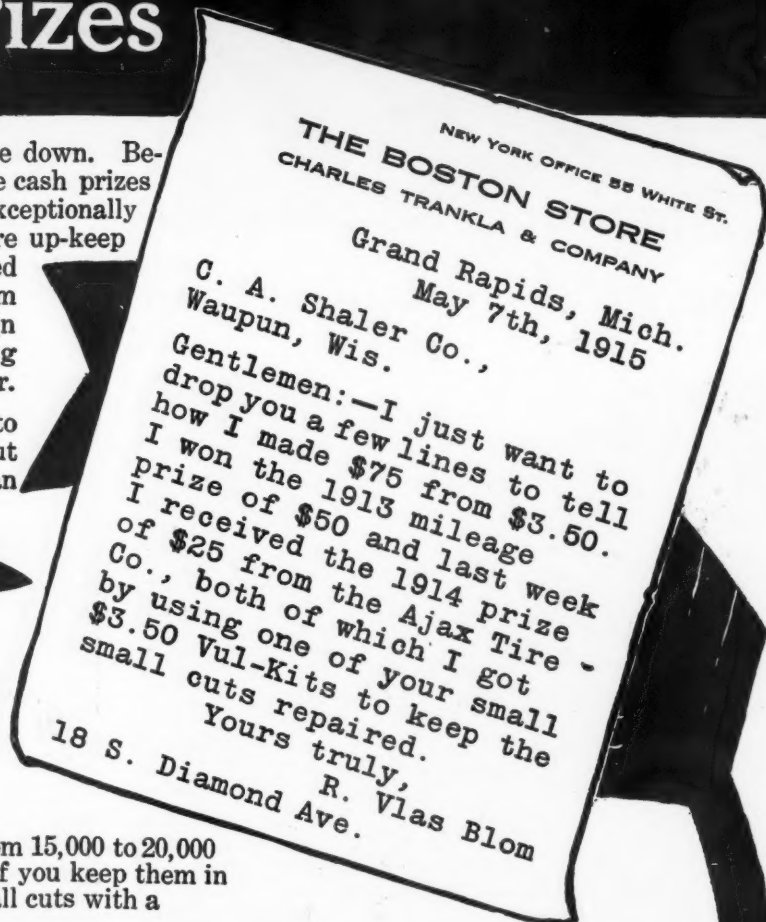 izes
e down. Be-
e cash prizes
xceptionally
re up-keep
ed
m
n
g
r.
to
ut
an
NEW YORK OFFICE 55 WHITE ST.
THE BOSTON STORE
CHARLES TRANKLA & COMPANY
Grand Rapids, Mich.
May 7th, 1915
C. A. Shaler Co.,
Waupun, Wis.
Gentlemen:—I just want to
drop you a few lines to tell
how I made $75 from $3.50.
I won the 1913 mileage
prize of $50 and last week
I received the 1914 prize
of $25 from the Ajax Tire -
Co., both of which I got
by using one of your small
$3.50 Vul-Kits to keep the
small cuts repaired.
Yours truly,
R. Vlas Blom
18 S. Diamond Ave.
m 15,000 to 20,000
f you keep them in
ll cuts with a